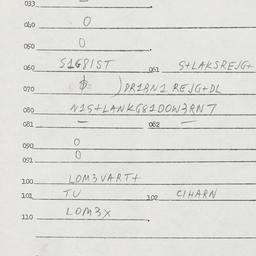 033 —
040 0
050 0
060 S1G8IST 061 S+LAKSREJG+
070 ϕ )DR1BN1 REJG+DL
080 N1S+LANKG81DOW3RNT
081 — 082 —
090 0
091 0
100 LOM3VART+
101 TU 102 C1HARN
110 LOM3X